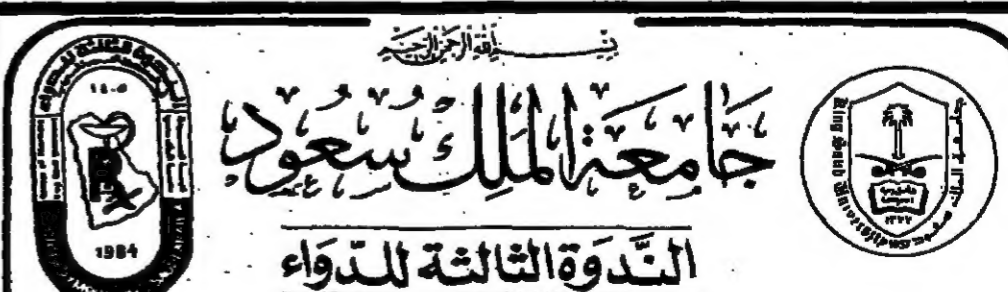 بسم الله الرحمن الرحيم
جَامعَة المَلِك سُعُود
النَّدوَة الثالثة للدّوَاء
١٤٠٥
1984
King Saud University
١٣٧٧
1957